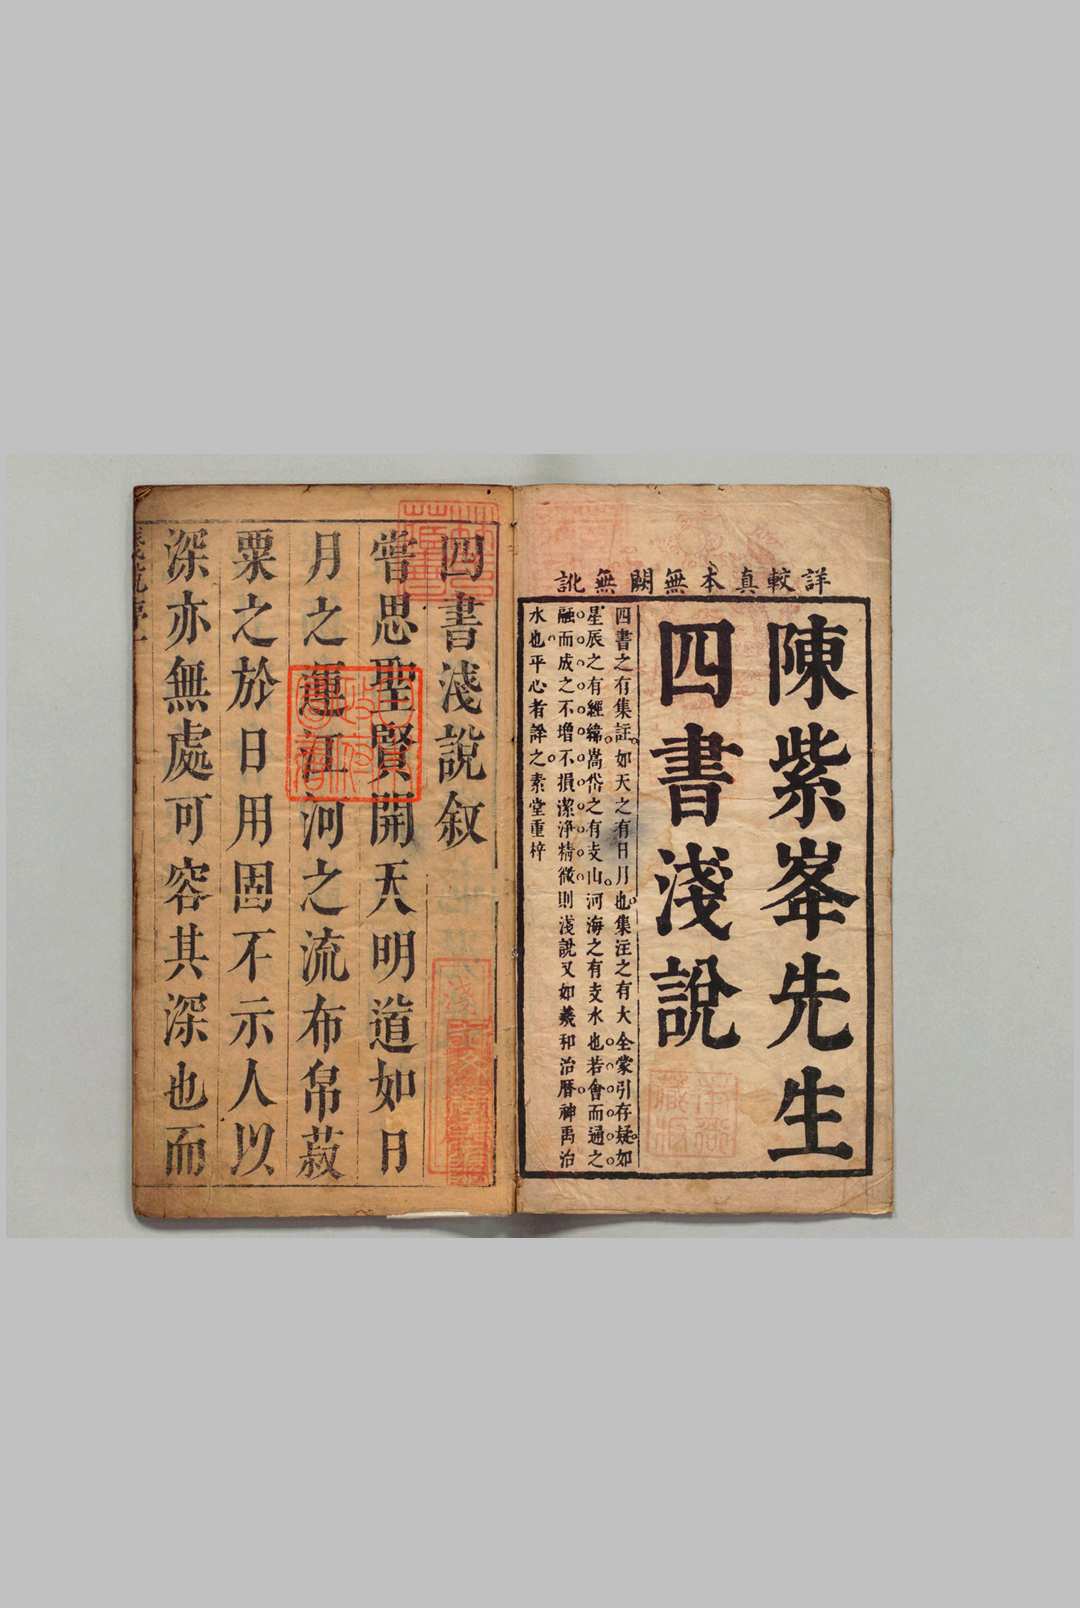 詳較真本無闕無訛
陳紫峯先生
四書淺說
四書之有集註如天之有日月也集注之有大全蒙引存疑如
星辰之有經緯嵩岱之有支山河海之有支水也若會而通之
融而成之不增不損潔淨精微則淺說又如羲和治曆神禹治
水也平心者譯之素堂重梓
四書淺說叙
嘗思聖賢開天明道如日
月之運江河之流布帛菽
粟之於日用固不示人以
深亦無處可容其深也而